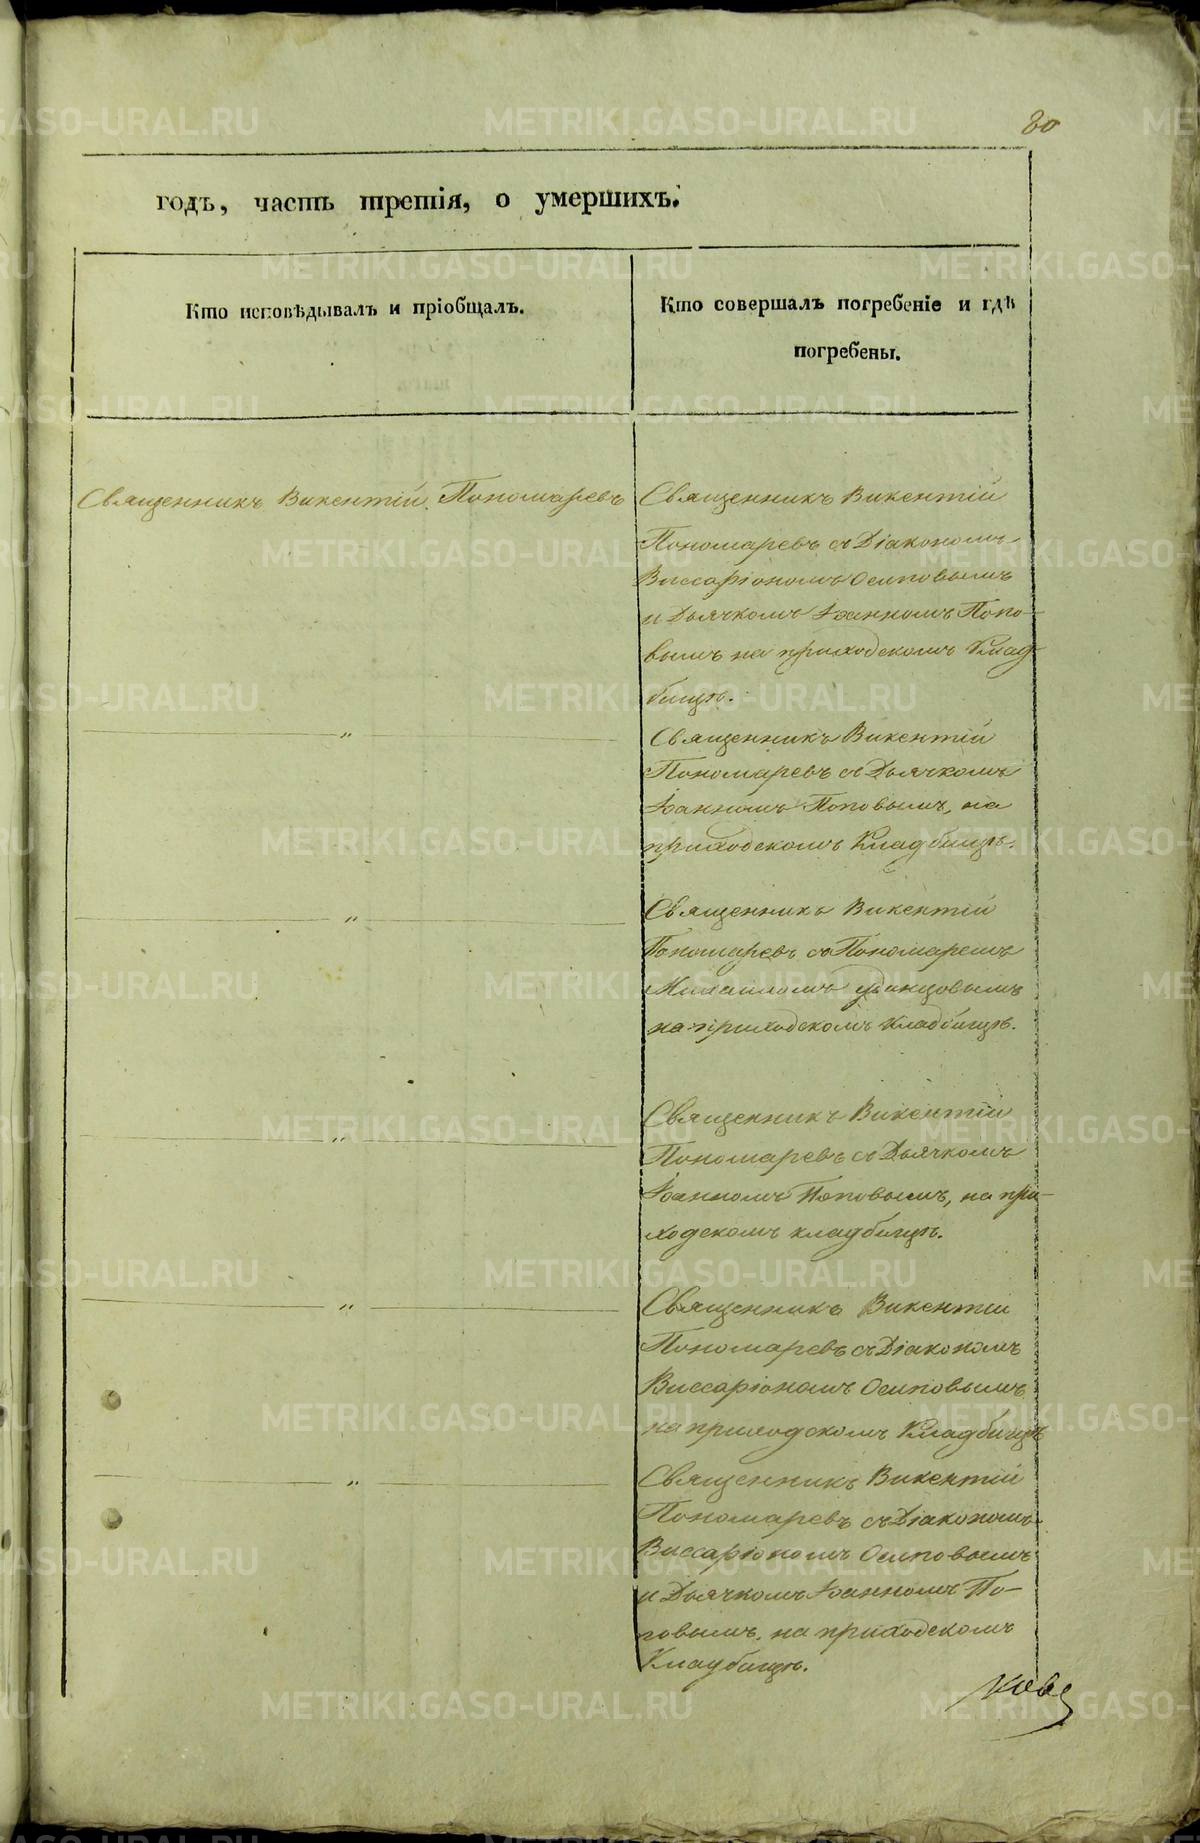 80
годъ, часть третія, о умершихъ.
Кто исповѣдывалъ и пріобщалъ.
Кто совершалъ погребеніе и гдѣ
погребены.
Священникъ Викентій Пономаревъ
Священникъ Викентій
Пономаревъ съ Діакономъ
Виссаріономъ Осиповымъ
и Дьячкомъ Іоанномъ Попо-
вымъ на приходскомъ Клад-
бищѣ.
"
Священникъ Викентій
Пономаревъ съ Дьячкомъ
Іоанномъ Поповымъ, на
приходскомъ Кладбищѣ.
"
Священникъ Викентій
Пономаревъ съ Пономаремъ
Михаиломъ Удинцовымъ
на приходскомъ кладбищѣ.
"
Священникъ Викентій
Пономаревъ съ Дьячкомъ
Іоанномъ Поповымъ, на при-
ходскомъ кладбищѣ.
"
Священникъ Викентій
Пономаревъ съ Діакономъ
Виссаріономъ Осиповымъ
на приходскомъ Кладбищѣ
"
Священникъ Викентій
Пономаревъ съ Діакономъ
Виссаріономъ Осиповымъ
и Дьячкомъ Іоанномъ По-
повымъ, на приходскомъ
Кладбищѣ.
METRIKI.GASO-URAL.RU